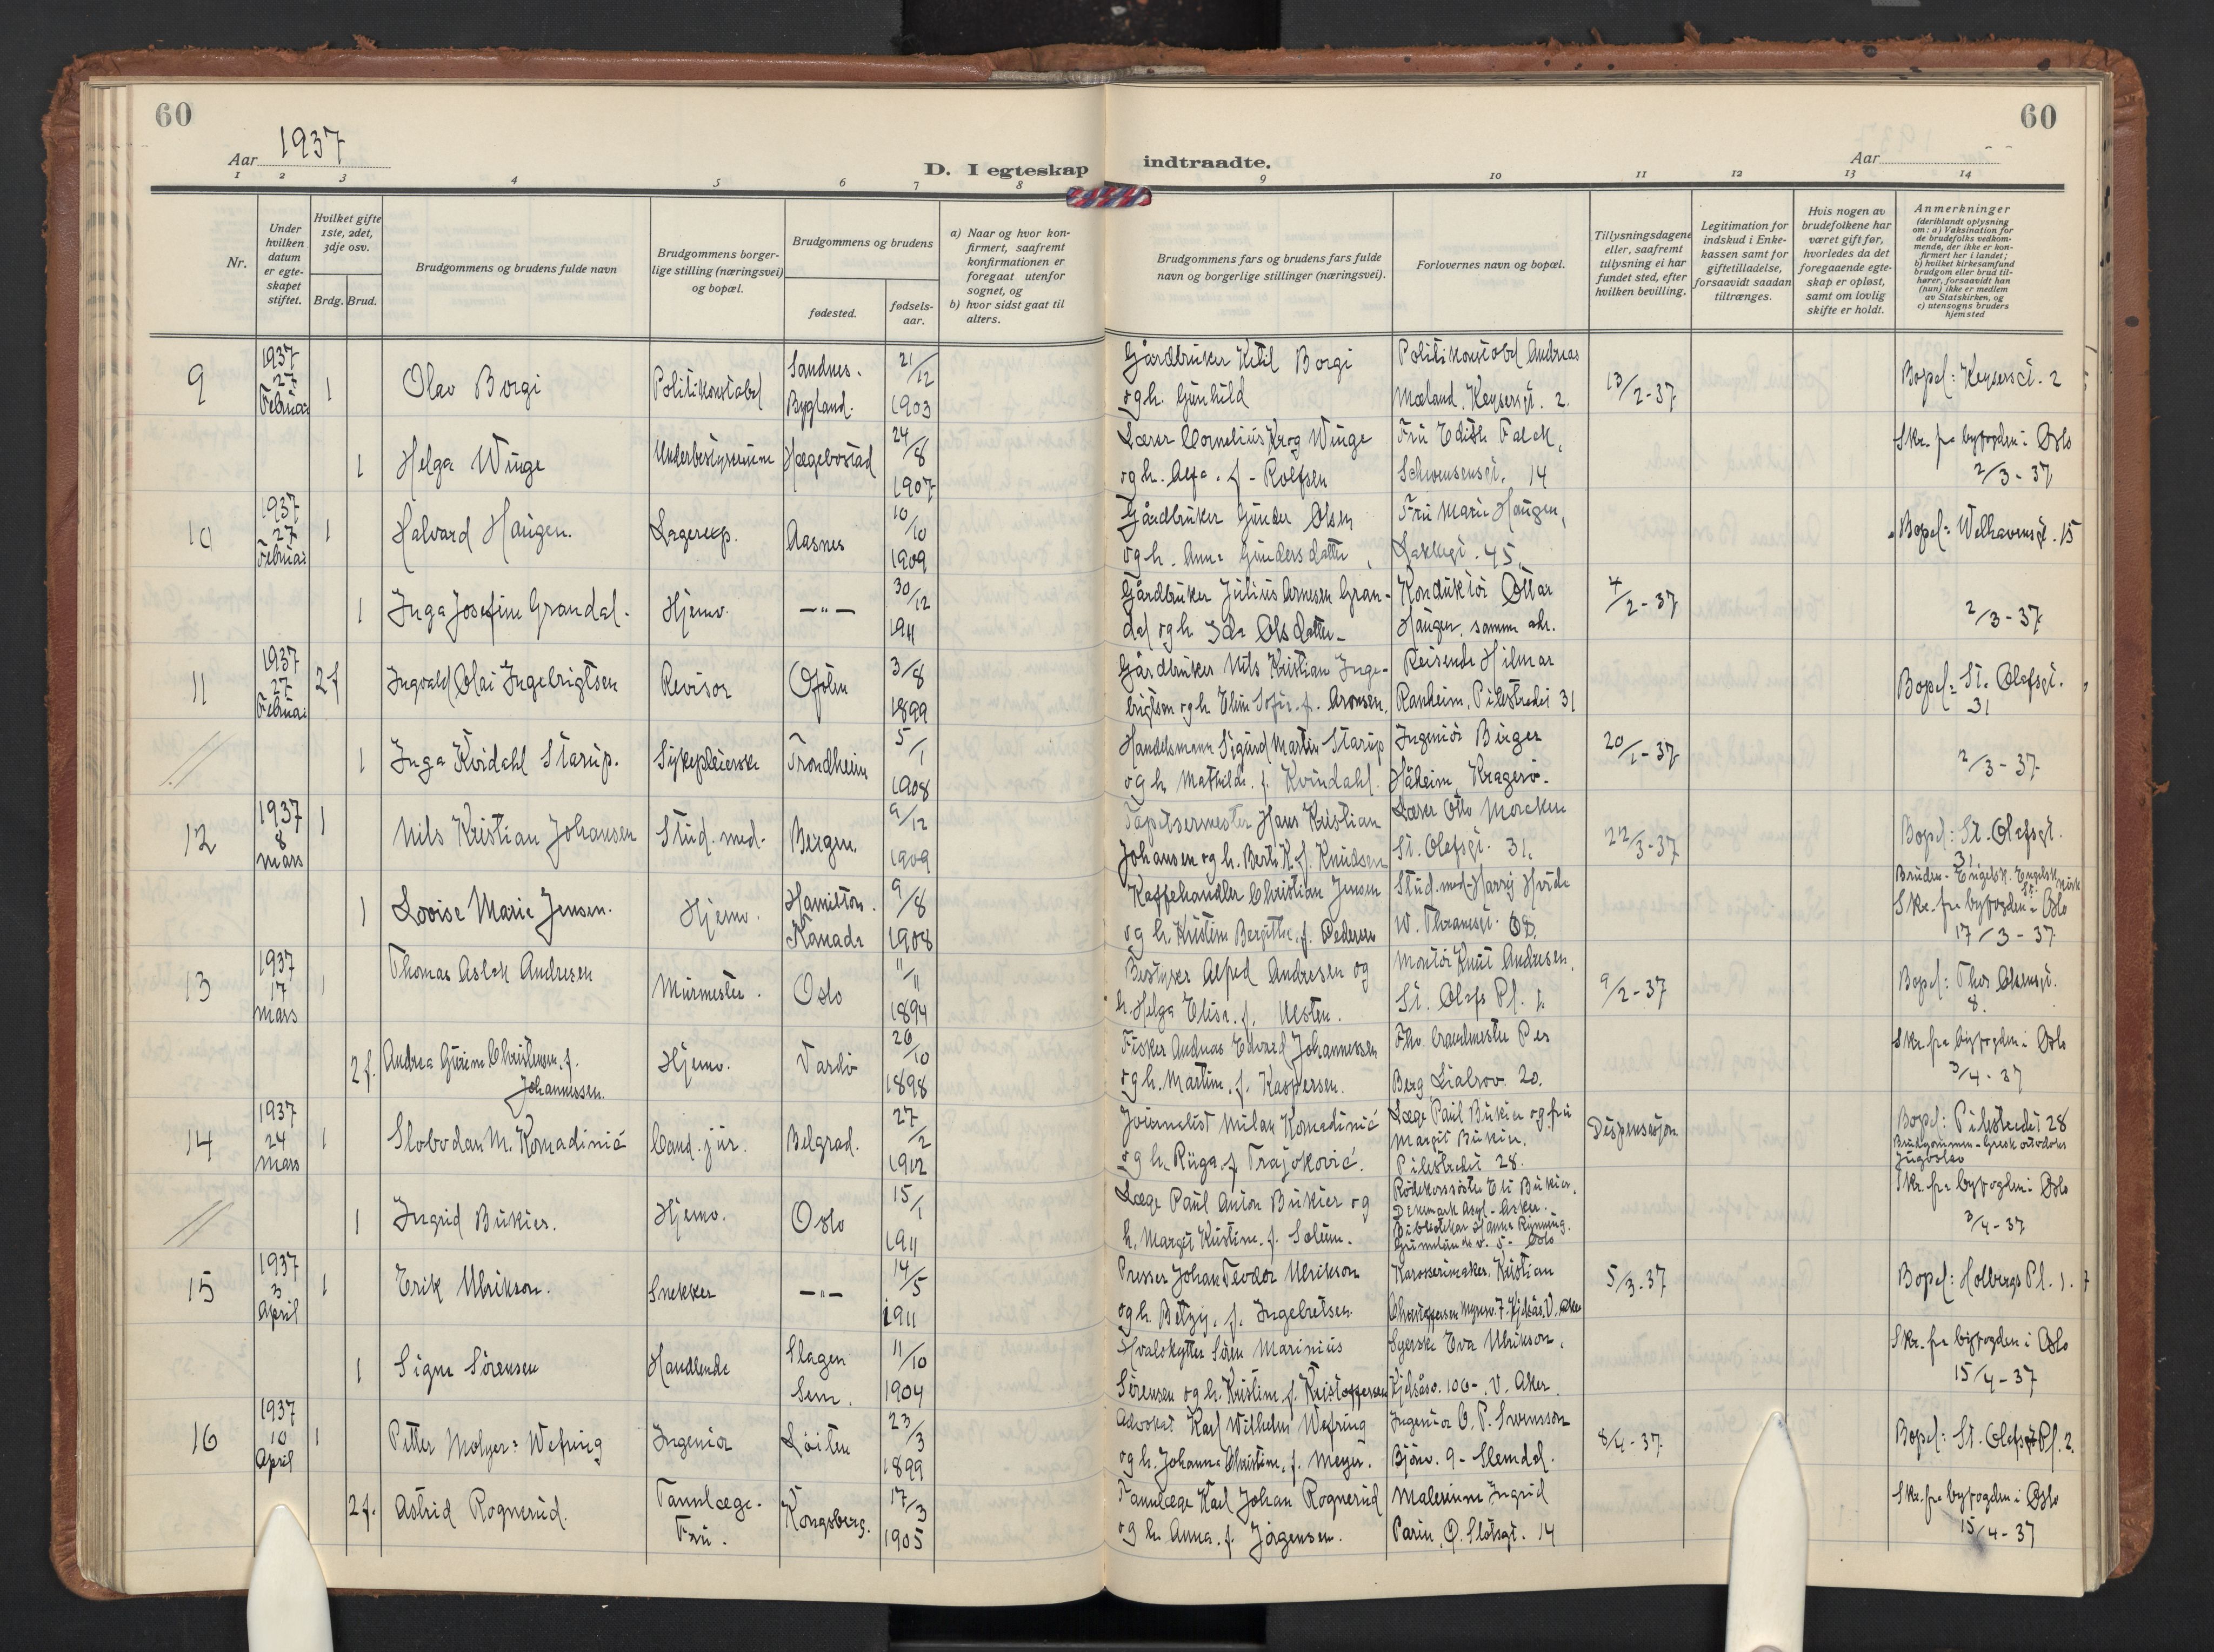 60
60
Aar 1937
Aar
D. I egteskap indtraadte.
1 2 3 4 5 6 7 8 9 10 11 12 13 14
Nr.
Under hvilken datum er egte- skapet stiftet.
Hvilket gifte 1ste, 2det, 3dje osv.
Brdg. Brud.
Brudgommens og brudens fulde navn
Brudgommens borger- lige stilling (næringsvei) og bopæl.
Brudgommens og brudens
fødested.
fødsels- aar.
a) Naar og hvor kon- firmert, saafremt konfirmationen er foregaat utenfor sognet, og
b) hvor sidst gaat til alters.
Brudgommens fars og brudens fars fulde navn og borgerlige stillinger (næringsvei).
Forlovernes navn og bopæl.
Tillysningsdagene eller, saafremt tillysning ei har fundet sted, efter hvilken bevilling.
Legitimation for indskud i Enke- kassen samt for giftetilladelse, forsaavidt saadan tiltrænges.
Hvis nogen av brudefolkene har været gift før, hvorledes da det foregaaende egte- skap er opløst, samt om lovlig skifte er holdt.
Anmerkninger
(deriblandt oplysning om: a) Vaksination for de brudefolks vedkom- mende, der ikke er kon- firmert her i landet; b) hvilket kirkesamfund brudgom eller brud til- hører, forsaavidt han (hun) ikke er medlem av Statskirken, og c) utensogns bruders hjemsted
9 1937 27 Februar 1 Olav Borgi Politikonstabel Sandnes. Bygland. 21/12 1903
Gårdbruker Ketil Borgi og h. Gunhild
Politikonstabel Andreas Mæland. Keysersgt. 2.
13/2-37
Bopel: Keysersgt. 2
1 Helga Winge Underbestyrerinne Hægebostad 24/8 1907
Lærer Cornelius Krog Winge og h. Alfa. f. Rolfsen
Fru Edith Falck, Schwensensgt. 14
Skr. fra byfogden i Oslo 2/3-37
10 1937 27 Februar 1 Halvard Haugen. Lagereksp. Aasnes 10/10 1909
Gårdbruker Gunder Olsen og h. Anne Gundersdatter
Fru Marie Haugen, Lakkegt. 45,
Bopel: Welhavensgt. 15
1 Inga Josefine Grandal. Hjemv. —"— 30/12 1911
Gårdbruker Julius Arnesen Gran- dal og h. Ida Olsdatter
Konduktør Ottar Haugen, samme adr.
4/2-37
2/3-37
11 1937 27 Februar 2f Ingvald Olai Ingebrigtsen Revisor Ofoten 3/8 1899
Gårdbruker Nils Kristian Inge- brigtsen og h. Elen Sofie. f. Aronsen,
Reisende Hilmar Ranheim, Pilestredet 31
Bopel: St. Olafsgt. 31
1 Inga Kvidahl Starup. Sykepleierske Trondheim 5/1 1908
Handelsmann Sigurd Martin Starup og h. Mathilde. f. Kvindahl.
Ingeniør Birger Håheim, Kragerø.
20/1-37
2/3-37
12 1937 8 mars 1 Nils Kristian Johansen Stud. med. Bergen 9/12 1909
Tapetsermester Hans Kristian Johansen og h. Berta K. f. Knudsen
Lærer Otto Morcken St. Olafsgt. 31.
22/3-37
Bopel: St. Olafsgt. 31
1 Lovise Marie Jensen. Hjemv. Hamilton. Kanada 9/8 1908
Kaffehandler Christian Jensen og h. Kristine Bergitte. f. Pedersen
Stud. med. Harry Hvide W. Thranesgt. 68,
Bruden - Engelsk.
Skr. fra byfogden i Oslo 17/3-37
13 1937 17 mars 1 Thomas Aslak Andresen Murmester. Oslo 11/11 1894
Bestyrer Alfred Andresen og h. Helga Elise. f. Uesten.
Montør Knut Andresen, St. Olafs Pl. 1.
9/2-37
Bopel: Thor Olsensgt. 8.
2f. Andrea Gurine Christensen. f. Johannessen. Hjemv. Vardø 26/10 1898
Fisker Andreas Edvard Johannessen og h. Martine. f. Kaspersen.
Fhv. brandmester Per Berg Lialsvo. 20.
Skr. fra byfogden i Oslo 3/4-37
14 1937 24 mars 1 Slobodan M. Komadinić Cand. jur. Belgrad. 27/2 1912
Journalist Milan Komadinić og h. Ruga. f. Trajoković.
Læge Paul Bukier og fru Margit Bukier. Pilestredet 28.
Dispensasjon
Bopel: Pilestredet 28
Brudgommen - Gresk ortodoks Jugoslav
1 Ingrid Bukier. Hjemv. Oslo 15/1 1911
Læge Paul Anton Bukier og h. Margit Kristine. f. Solum.
Rødekorssøster Eli Bukier, Dikemark Asyl - Asker. Bibliotekar Hanne Rynning.
Skr. fra byfogden i Oslo 3/4-37
15 1937 3 April 1 Erik Ulrikson. Snekker —"— 14/5 1911
Presser Johan Teodor Ulrikson og h. Betzy. f. Ingebretsen
Karosserimaker. Kristian Christoffersen
5/3-37
Bopel: Holbergs Pl. 1.
1 Signe Sørensen Handlende Slagen Sem. 11/10 1904
Hvalskytter Søren Marinius Sørensen og h. Kristine f. Kristoffersen
Syerske Eva Ulrikson, Kjelsåsv. 106-, V. Aker.
Skr. fra byfogden i Oslo 15/4-37
16 1937 10 April 1 Petter Molzer Wefring Ingeniør Løiten 23/3 1899
Advokat Karl Wilhelm Wefring og h. Johanna Christine. f. Meyer.
Ingeniør O. P. Svensson Bjørnv. 9 - Slemdal.
8/4-37
Bopel: St. Olafs Pl. 2.
2f. Astrid Rognerud. Tannlæge. Fru. Kongsberg. 17/3 1905
Tannlæge Karl Johan Rognerud og h. Anna. f. Jørgensen.
Malerinne Ingrid Parin, O. Slotsgt. 14
Skr. fra byfogden i Oslo 15/4-37